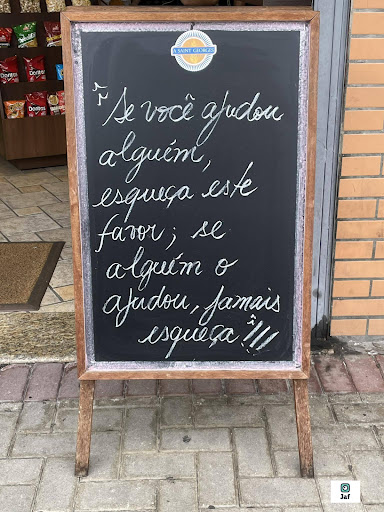 Doritos
A SAINT GEORGES
"Se você ajudou
alguém,
esqueça este
favor; se
alguém o
ajudou, jamais
esqueça"!!!
Jaf